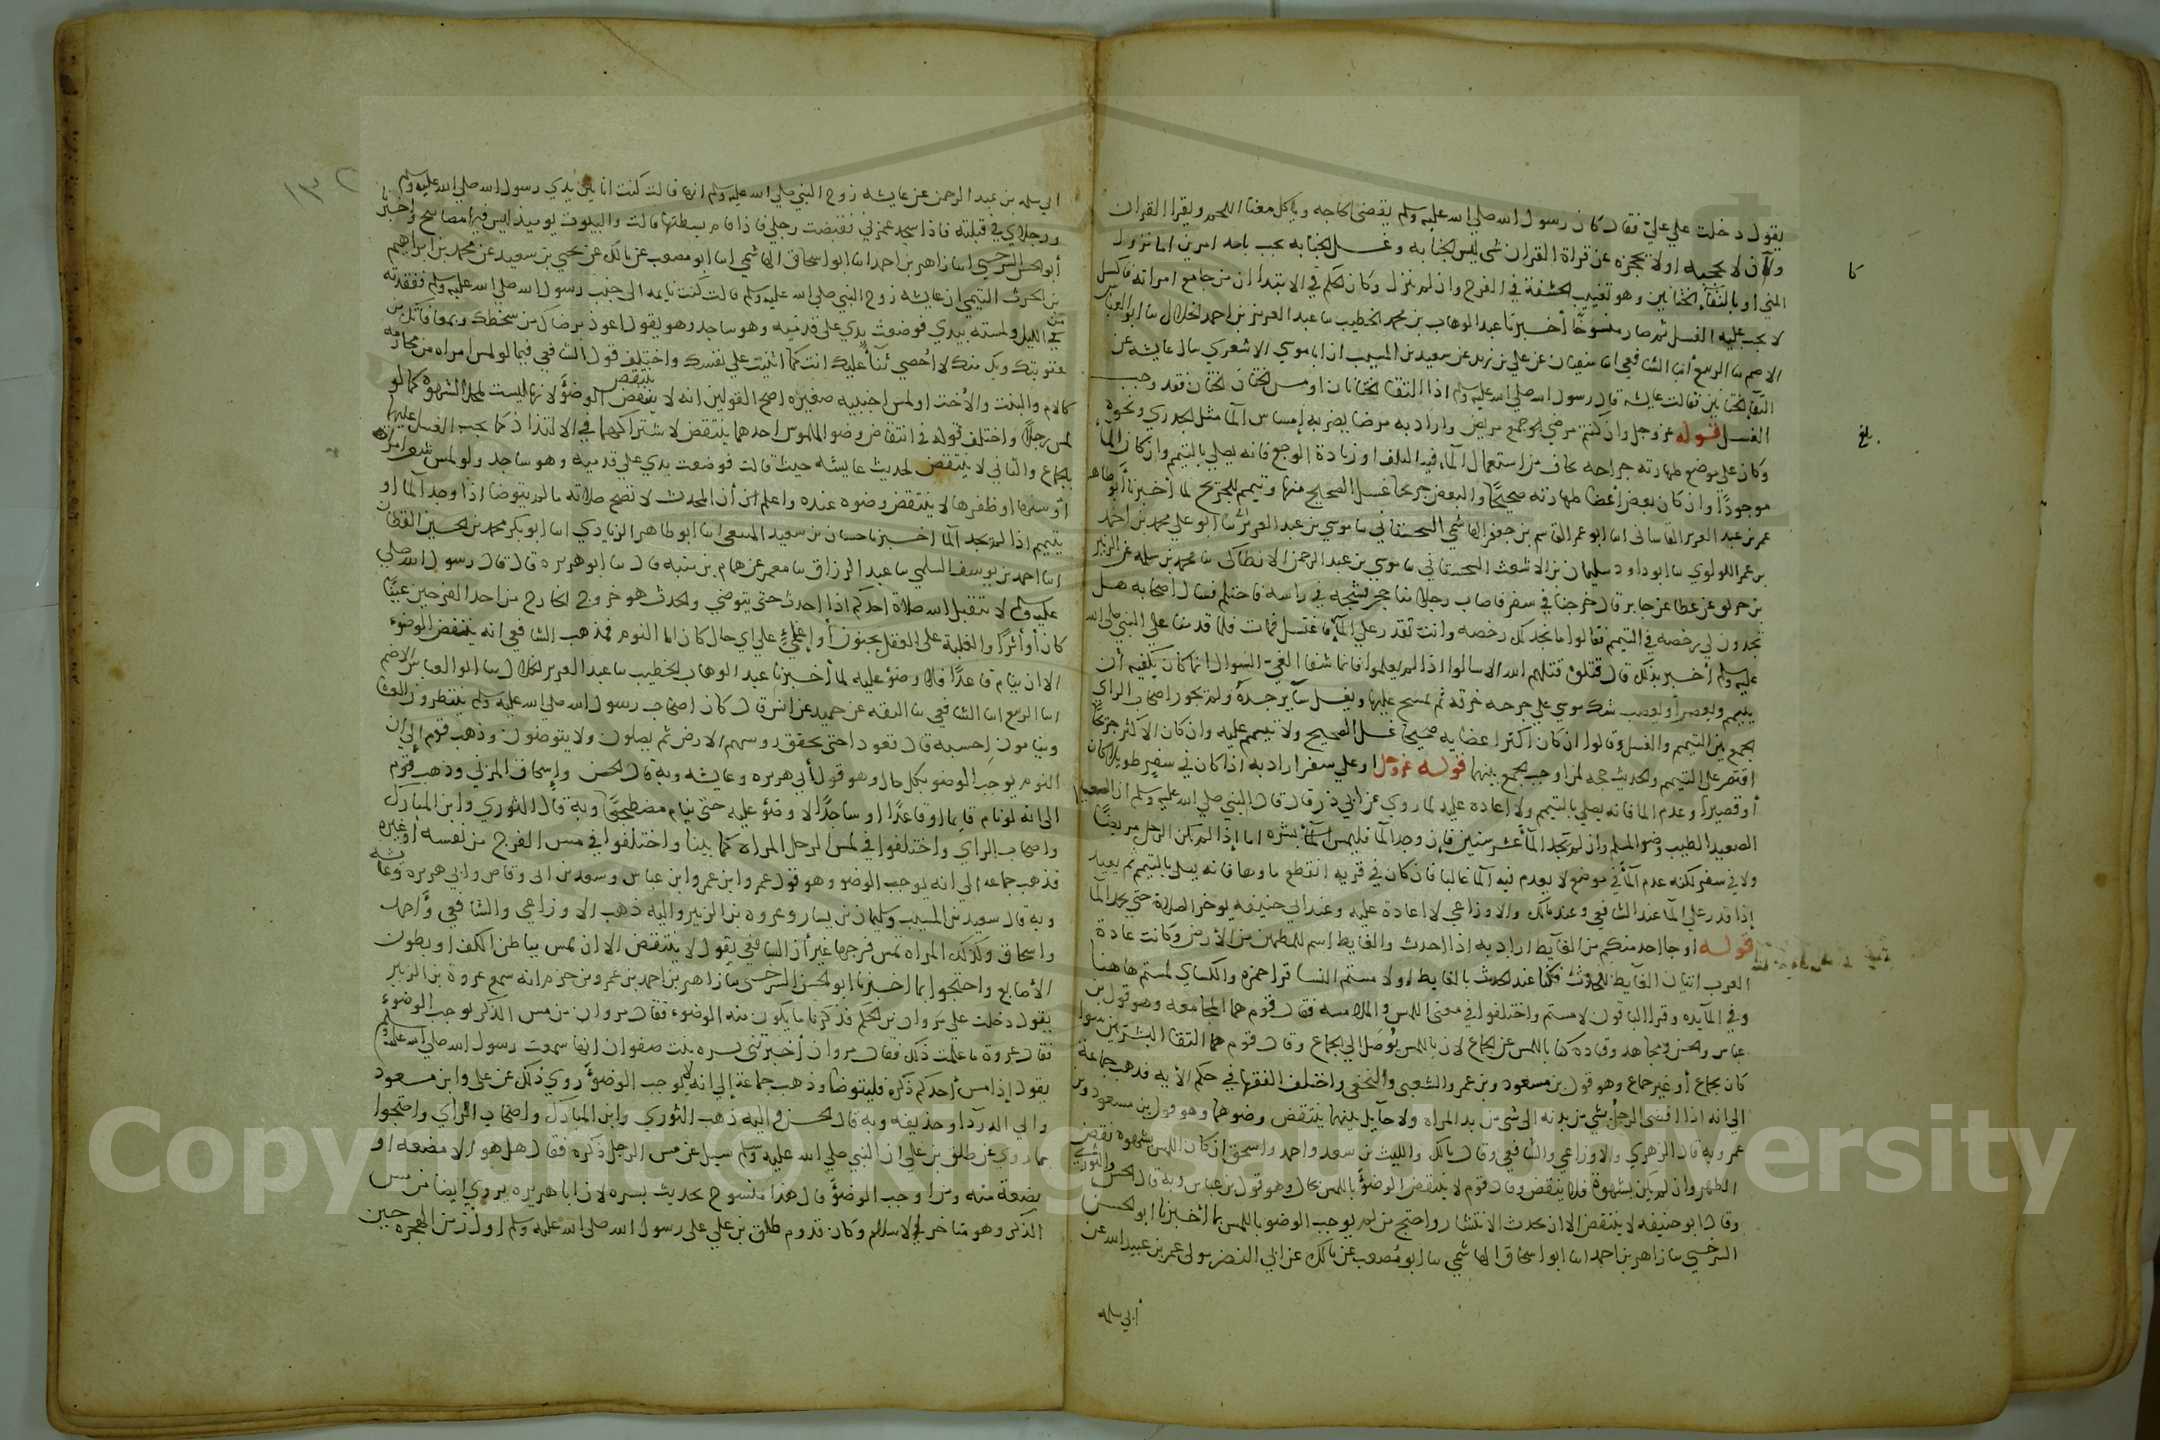 يقول دخلت علي عليّ فقال كان رسول الله صلي الله عليه وسلم يقضي الحاجه وياكل معنا اللحم ويقرا القران
وكان لا يحجبه اولا يحجزه عن قراة القران شي ليس الجنابه وغسل الجنابه يجب باحد امرين اما نزول
المني او بالتقآء الختانين وهو تغييب الحشفة في الفرج وان لم ينزل وكان الحكم في الابتدا ان من جامع امراته فاكسل
لا يجب عليه الغسل ثم صار منسوخًا أخبرنا عبد الوهاب بن محمد الخطيب ما عبد العزيز بن احمد الخلال ما ابو العباس
الاصم ما الربيع أنبا الشافعي انا سفيان عن علي بن زيد عن سعيد بن المسيب ان ابا موسي الاشعري سال عايشه عن
التقآء الختانين فقالت عايشه قال رسول الله صلي الله عليه وسلم اذا التقا الختانان او مس الختان الختان فقد وجب
الغسل قوله عز وجل وان كنتم مرضي جمع مريض واراد به مرضا يضر به إمساس المآ مثل الجدري ونحوه
وكان علي موضع طهارته جراحه يخاف من استعمال المآء فيه التلف او زيادة الوجع فانه يصلي بالتيمم وان كان المآء
موجودًا وان كان بعض أعضا طهارته صحيحًا والبعض جريحا غسل الصحيح منها وتيمم للجريح لما أخبرنا أبو طاهر
عمر بن عبد العزيز القاساني انا ابو عمر القاسم بن جعفر الهاشمي
بن عمر اللولوي ما ابو داود سليمان بن الاشعث السجستاني ما موسي بن عبد الرحمن الانطاكي ما محمد بن سلمه عن الزبير
بن خريق عن عطا عن جابر قال خرجنا في سفر فاصاب رجلا منا حجر فشجه في راسه فاحتلم فسال اصحابه هل
تجدون لي رخصه في التيمم فقالوا ما نجد لك رخصه وانت تقدر علي المآ فاغتسل فمات فلما قدمنا علي النبي صلي الله
عليه وسلم أخبر بذلك قال قتلوه قتلهم الله الا سالوا اذا لم يعلموا فانما شفا العي السوال انما كان يكفيه أن
يتيمم ويعصر أو يعصب شك موسي علي جرحه خرقه ثم يمسح عليها ويغسل سآير جسده ولم يجوز اصحاب الراي
الجمع بين التيمم والغسل وقالوا ان كان اكثر اعضايه صحيحا غسل الصحيح ولا تيمم عليه وان كان الاكثر جريحًا
اقتصر علي التيمم والحديث حجه لمن اوجب الجمع بينهما قوله عز وجل او علي سفر اراد به اذا كان في سفر طويل كان
أو قصير او عدم المآ فانه يصلي بالتيمم ولا اعاده عليه لما روي عن ابي ذر قال قال النبي صلي الله عليه وسلم ان الصعيد
الصعيد الطيب وضو المسلم وان لم يجد المآء عشر سنين فإن وجد المآ فليمس المآء بشره اما إذا لم يكن الرجل مريضًا
ولا في سفر لكنه عدم المآء في موضع لا يعدم فيه المآ غالبا فان كان في قريه انقطع ماوها فانه يصلي بالتيمم ثم يعيد
إذا قدر علي المآ عند الشافعي وعند مالك والاوزاعي لا اعادة عليه وعند ابي حنيفه يوخر الصلاة حتي يجد المآ
قوله او جا احد منكم من الغآيط اراد به اذا احدث والغايط اسم للمطمين من الأرض وكانت عادة
العرب اتيان الغآيط للحدث فكني عند الحدث بالغايط او لا مستم النسا قرا حمزه والكساي لمستم هاهنا
وفي المآيده وقرا الباقون لامستم واختلفوا في معني اللمس والملامسه فقال قوم هما المجامعه وهو قول بن
عباس والحسن ومجاهد وقتاده كنا باللمس عن الجماع لان باللمس يوصل الي الجماع وقال قوم هما التقا البشرتين سوا
كان بجماع أو غير جماع وهو قول بن مسعود وبن عمر والشعبي والنخعي واختلف الفقها في حكم الأيه فذهب جماعة
الي انه اذا افضي الرجل بشي من بدنه الي شي من بدن المراه ولا حآيل بينهما ينتقض وضوهما وهو قول بن مسعود وبن
عمر وبه قال الزهري والاوزاعي والشافعي وقال مالك والليث بن سعد واحمد واسحق ان كان اللمس بشهوه نقض
الطهر وان لم يكن بشهوة فلا ينتقض وقال قوم لا ينتقض الوضوء باللمس بحال وهو قول بن عباس وبه قال الحسن والثوري
وقال ابو حنيفه لا ينتقض الا ان يحدث الانتشار واحتج من لم يوجب الوضو باللمس بما أخبرنا ابو الحسن
السرخسي ما زاهر بن احمد انا ابو اسحاق الهاشمي ما ابو مصعب عن مالك عن ابي النضر مولي عمر بن عبيد الله عن
أبي سلمه
كا
بلغ
١٣٢
ابي سلمه بن عبد الرحمن عن عايشه زوج النبي صلي الله عليه وسلم انها قالت كنت انام بين يدي رسول الله صلي الله عليه وسلم
ورجلاي في قبلته فاذا سجد غمزني فقبضت رجلي فاذا قام بسطتها قالت والبيوت يوميذ ليس فيها مصابيح وأخبرنا
أبو الحسن السرخسي انا زاهر بن احمد انا ابو اسحاق الهاشمي انا ابو مصعب عن مالك عن يحي بن سعيد عن محمد بن ابراهيم
بن الحرث التيمي ان عايشه زوج النبي صلي الله عليه وسلم قالت كنت نايمه الي جنب رسول الله صلي الله عليه وسلم ففقدته
من الليل فلمسته بيدي فوضعت يدي علي قدميه وهو ساجد وهو يقول اعوذ برضاك من سخطك وبمعافاتك من
عقوبتك وبك منك لا احصي ثنآء عليك انت كما اثنيت علي نفسك واختلف قول الشافعي فيما لو لمس امراه من محارمه
كالام والبنت والأخت او لمس اجنبيه صغيره اصح القولين انه لا ينقض الوضوء لانها ليست لمحل الشهوة كما لو
لمس رجلًا واختلف قوله في انتقاض وضو الملموس احدهما ينتقض لاشتراكهما في الالتذاذ كما يجب الغسل عليهما
بالجماع والثاني لا ينتقض لحديث عايشه حيث قالت فوضعت يدي علي قدميه وهو ساجد ولو لمس شعر امراه
أو سنها او ظفرها لا ينتقض وضوه عنده واعلم ان أن المحدث لا تصح صلاته ما لم يتوضا اذا وجد المآ او
يتيمم اذا لم يجد المآ أخبرنا حسان بن سعيد المنيعي انا ابو طاهر الزيادي انا ابو بكر محمد بن الحسين القطان
انا احمد بن يوسف السلمي ما عبد الرزاق ما معمر عن همام بن منبه قال ما ابو هريره قال قال رسول الله صلي
عليه وسلم لا تقبل الله صلاة احدكم اذا احدث حتي يتوضي والحدث هو خروج الخارج من احد الفرجين عينًا
كان أو أثرًا والغلبة علي العقل بجنون أو إغمآء علي اي حال كان اما النوم فمذهب الشافعي انه ينقض الوضوء
الا ان ينام قاعدًا فلا وضؤ عليه لما أخبرنا عبد الوهاب الخطيب ما عبد العزيز الخلال ما ابو العباس الاصم
انا الربيع انا الشافعي ما الثقه عن حميد عن انس قال كان اصحاب رسول الله صلي الله عليه وسلم ينتظرون العشا
وينامون احسبه قال قعودا حتي تخفق روسهم الارض ثم يصلون ولا يتوضون وذهب قوم إلي ان
النوم يوجب الوضو بكل حال وهو قول أبي هريره وعايشه وبه قال الحسن وإسحاق المزني وذهب قوم
الي انه لو نام قايما او قاعدًا او ساجدًا لا وضؤ عليه حتي ينام مضطجعًا وبه قال الثوري وابن المبارك
واصحاب الراي واختلفوا في لمس الرجل المراة كما بينا واختلفوا في مس الفرج من نفسه أو غيره
فذهب جماعه الي انه يوجب الوضو وهو قول عمر وابن عمر وابن عباس وسعد بن ابي وقاص وابي هريره وعايشه
وبه قال سعيد بن المسيب وسليمان بن يسار وعروه بن الزبير واليه ذهب الاوزاعي والشافعي وأحمد
واسحاق وكذلك المراه تمس فرجها غير أن الشافعي يقول لا ينتقض الا ان تمس بباطن الكف او بطون
الأصابع واحتجوا بما اخبرنا ابو الحسن السرخسي ما زاهر بن احمد بن عمرو بن حزم انه سمع عروة بن الزبير
يقول دخلت علي مروان بن الحكم فذكرنا ما يكون منه الوضوء فقال مروان من مس الذكر يوجب الوضوء
فقال عروة ما علمت ذلك فقال مروان أخبرتني بسره بنت صفوان انها سمعت رسول الله صلي الله عليه وسلم
يقول إذا مس أحدكم ذكره فليتوضا وذهب جماعة إلي انه لا يوجب الوضوء روي ذلك عن علي وابن مسعود
وابي الدردآ وحذيفه وبه قال الحسن واليه ذهب الثوري وابن المبارك واصحاب الراي واحتجوا
بما روي عن طلق بن علي ان النبي صلي الله عليه وسلم سيل عن مس الرجل ذكره فقال هل هو الا مضغه او
بضعة منه ومن اوجب الوضوء قال هذا منسوخ بحديث بسره لان ابا هريره يروي ايضا من مس
الذكر وهو متاخر الاسلام وكان قدوم طلق بن علي علي رسول الله صلي الله عليه وسلم اول زمن الهجره حين
Copyright © King Saud University